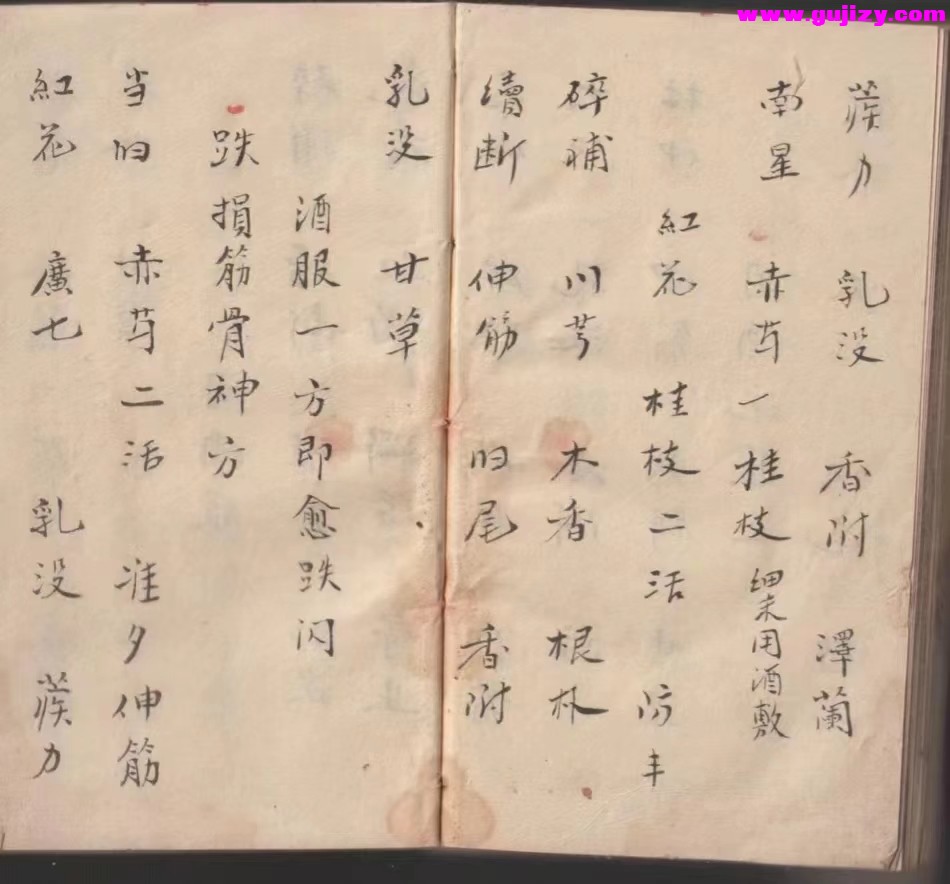 www.gujizy.com
蒺力 乳没 香附 澤蘭
南星 赤芍一 桂枝 細末用酒敷
紅花 桂枝 二活 防丰
碎補 川芎 木香 根朴
續断 伸筋 归尾 香附
乳没 甘草
酒服一方即愈跌闪
跌損筋骨神方
当归 赤芍 二活 准夕 伸筋
紅花 廣七 乳没 蒺力